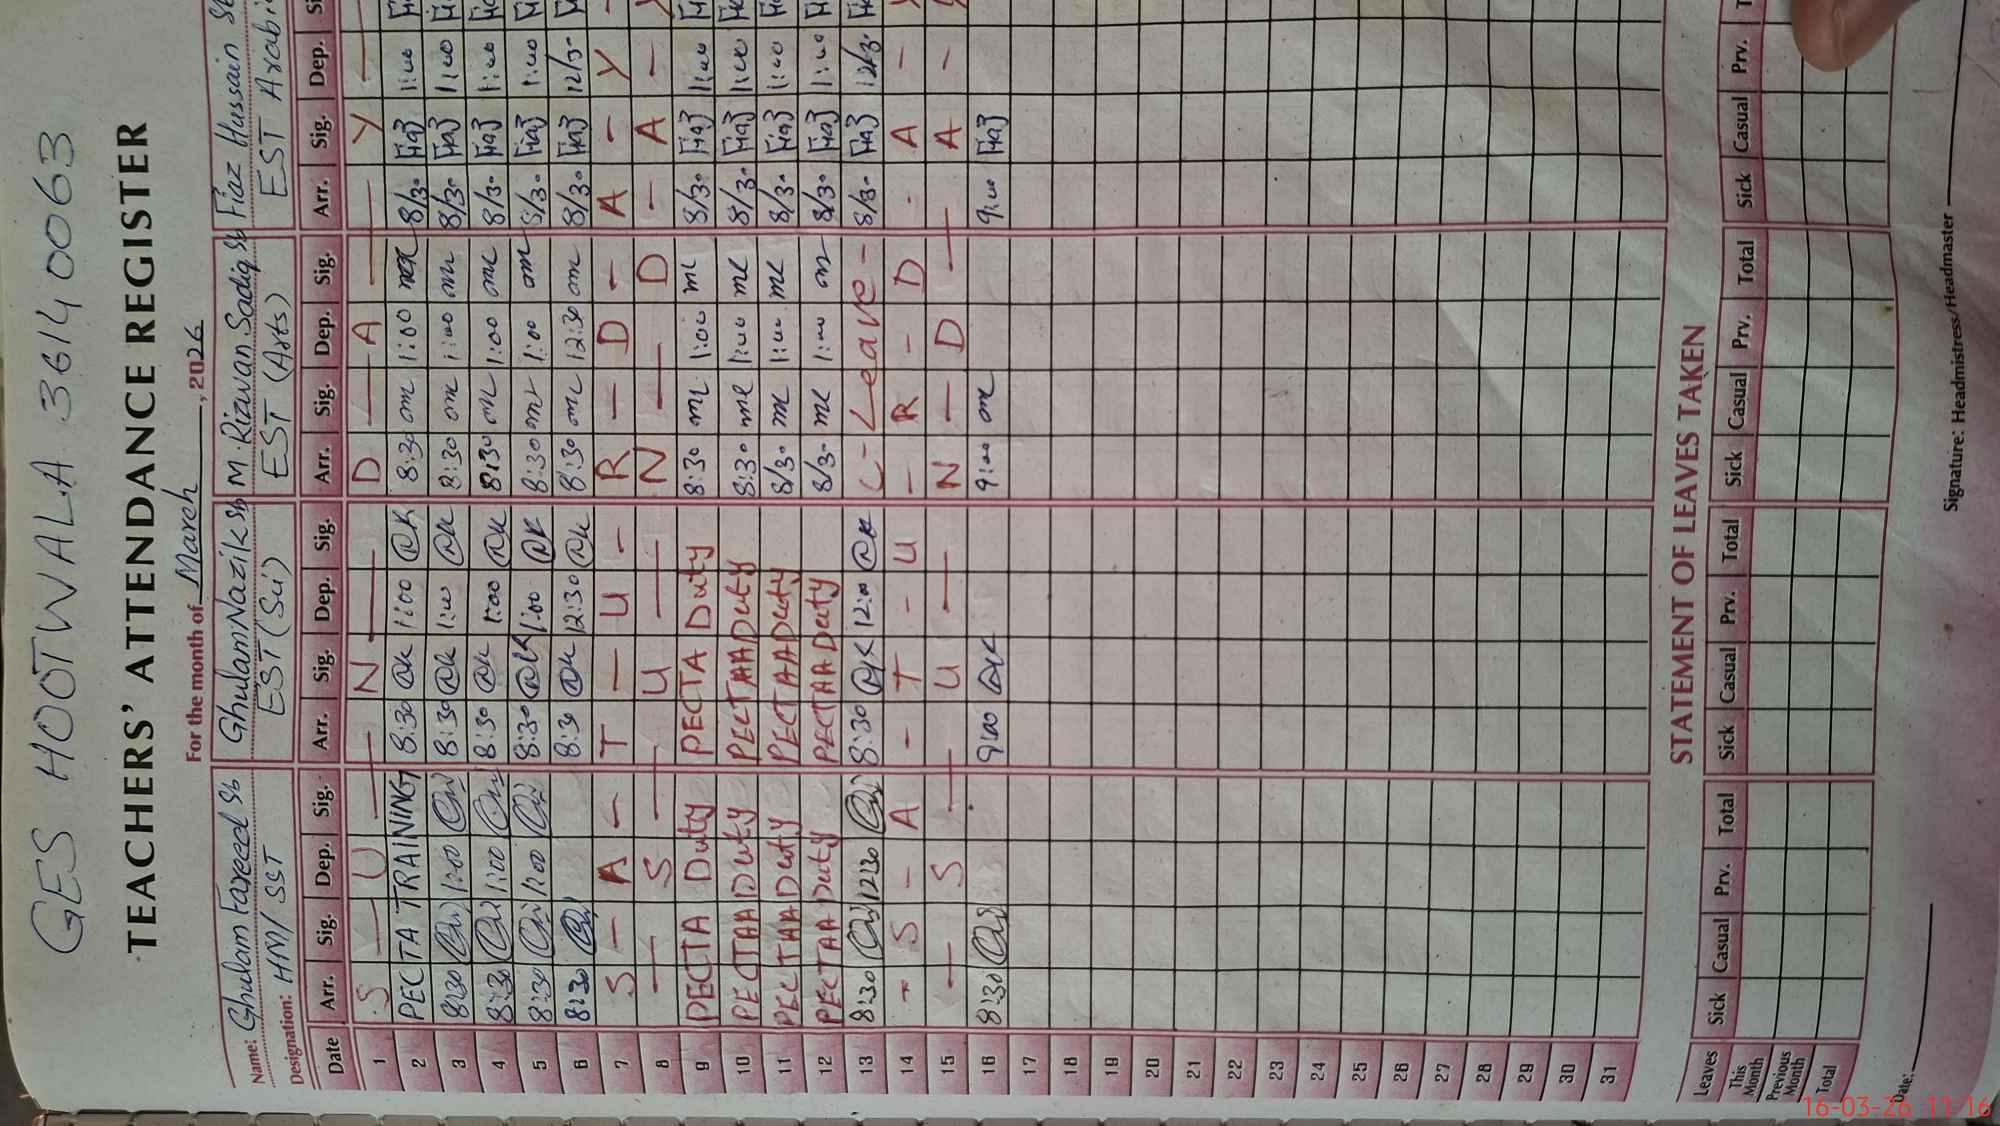 GES HOOTWALA 36140063
TEACHERS' ATTENDANCE REGISTER
For the month of March, 2026
Name: Ghulam Fareed Sb Ghulam Nazik Sb M. Rizwan Sadiq Sb Fiaz Hussain Sb
Designation: HM/SST EST (Sci) EST (Arts) EST Arabi
Date Arr. Sig. Dep. Sig. Arr. Sig. Dep. Sig. Arr. Sig. Dep. Sig. Arr. Sig. Dep. Si
1 S — U — N — D — A — Y —
2 PECTA TRAINING 8:30 1:00 8:30 1:00 8/30 Fiaz 1:00
3 8:30 1:00 8:30 1:00 8:30 1:00 8/30 Fiaz 1:00
4 8:30 1:00 8:30 1:00 8:30 1:00 8/30 Fiaz 1:00
5 8:30 1:00 8:30 1:00 8:30 1:00 8/30 Fiaz 1:00
6 8:30 8:30 12:30 8:30 12:30 8/30 Fiaz 12/30
7 S — A — T — U — R — D — A — Y
8 — S — U — N — D — A —
9 PECTA Duty PECTA Duty 8:30 1:00 8/30 Fiaz 1:00
10 PECTAA Duty PECTAA Duty 8:30 1:00 8/30 Fiaz 1:00
11 PECTAA Duty PECTAA Duty 8/30 1:00 8/30 Fiaz 1:00
12 PECTAA Duty PECTAA Duty 8/30 1:00 8/30 Fiaz 1:00
13 8:30 12:30 8:30 12:00 Leave 8/30 Fiaz 12/30
14 - S - A - T - U - R - D - A -
15 — S — U — N — D — A —
16 8:30 9:00 9:00 9:00 Fiaz
17
18
19
20
21
22
23
24
25
26
27
28
29
30
31
STATEMENT OF LEAVES TAKEN
Leaves Sick Casual Prv. Total Sick Casual Prv. Total Sick Casual Prv. Total Sick Casual Prv. T
This Month
Previous Month
Total
Date: Signature: Headmistress/Headmaster
16-03-26 11:16